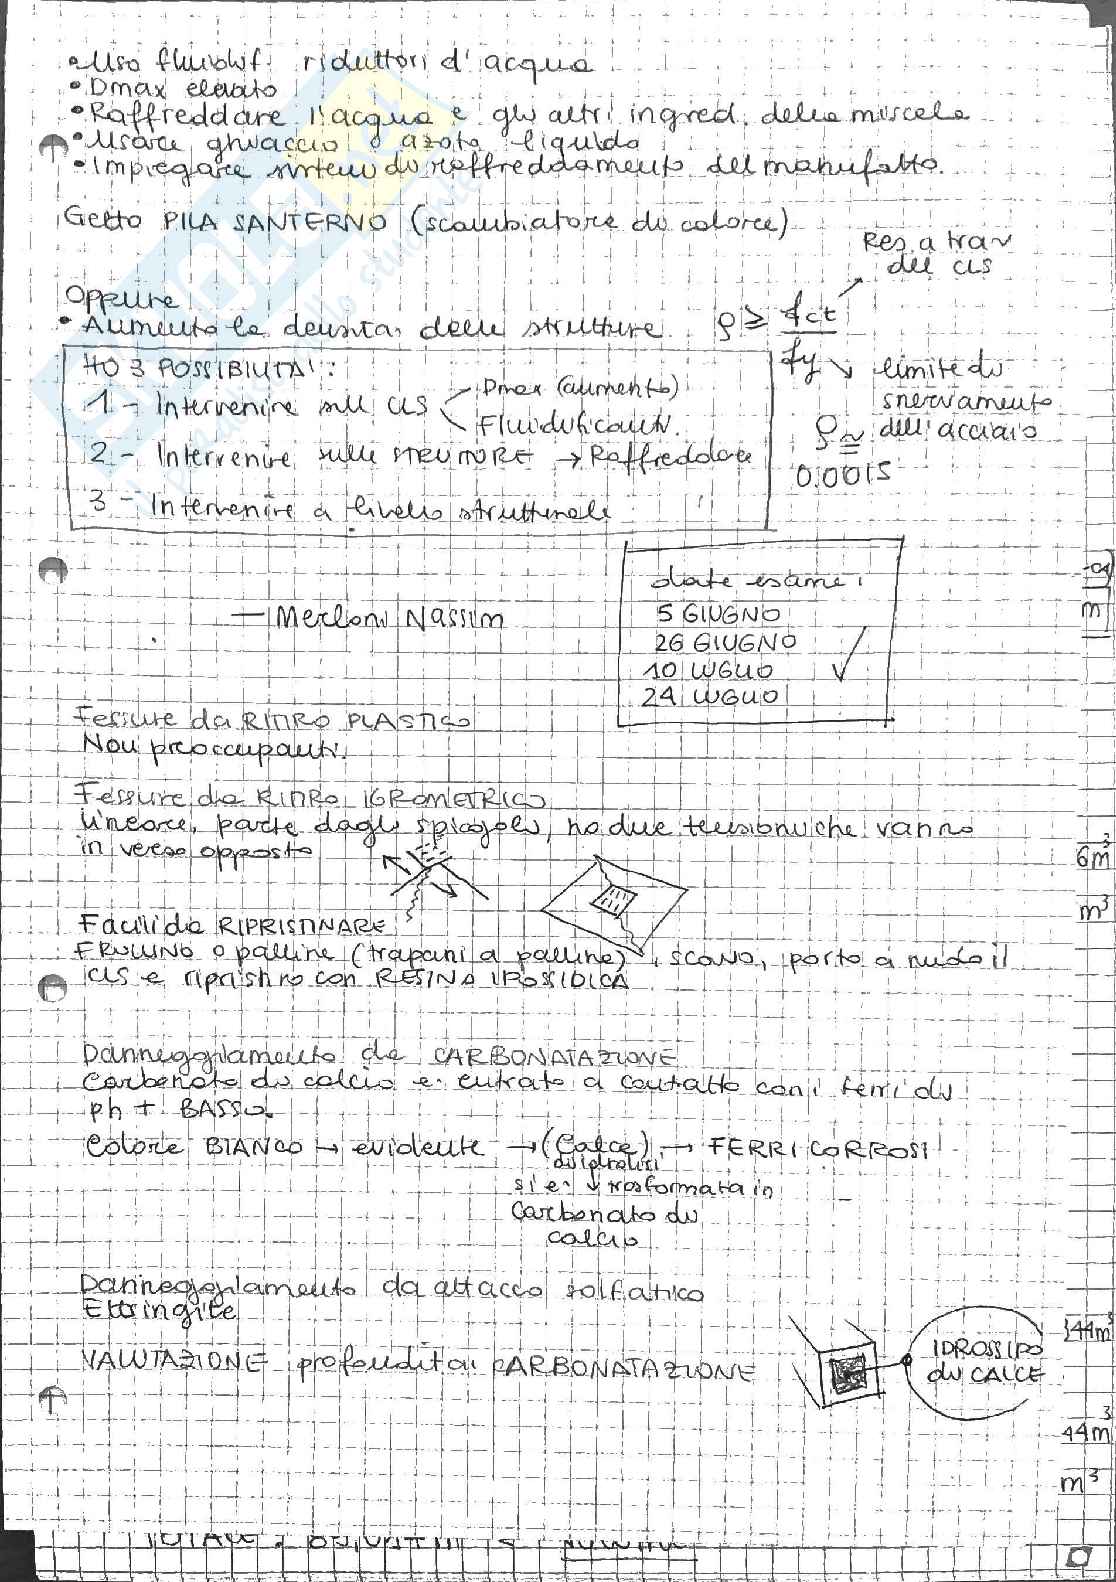 • Uso fluidif. riduttori d'acqua
• Dmax elevato
• Raffreddare l'acqua e gli altri ingred. della miscela
• Usare ghiaccio o azoto liquido
• Impiegare sistemi di raffreddamento del manufatto.
Getto PILA SANTERNO (scambiatore di calore)
Res. a traz
del cls
Oppure
• Aumento la densità delle strutture
ρ ≥ fct / fy
limite di
snervamento
dell'acciaio
ρ ≅
0.0015
HO 3 POSSIBILITA':
1 - Intervenire sul CLS
Dmax (aumento)
Fluidificanti.
2 - Intervenire sulle STRUTTURE → Raffreddare
3 - Intervenire a livello strutturale
date esame:
5 GIUGNO
26 GIUGNO
10 LUGLIO
24 LUGLIO
— Merloni Nassim
Fessure da RITIRO PLASTICO
Non preoccupanti.
Fessure da RITIRO IGROMETRICO
lineare, parte dagli spigoli, ho due tensioni che vanno
in verso opposto
Facili da RIPRISTINARE
FRULLINO o palline (trapani a palline), scavo, porto a nudo il
cls e ripristino con RESINA IPOSSIDICA
Danneggiamento da CARBONATAZIONE
Carbonato di calcio è entrato a contatto con i ferri di
ph + BASSO.
Colore BIANCO → evidente → (Calce) → FERRI CORROSI
di idrolisi
si è ↓ trasformata in
Carbonato di
calcio
Danneggiamento da attacco solfatico
Ettringite
VALUTAZIONE profondità CARBONATAZIONE
IDROSSIDO
di CALCE
m
6m³
m³
44m³
44m³
m³